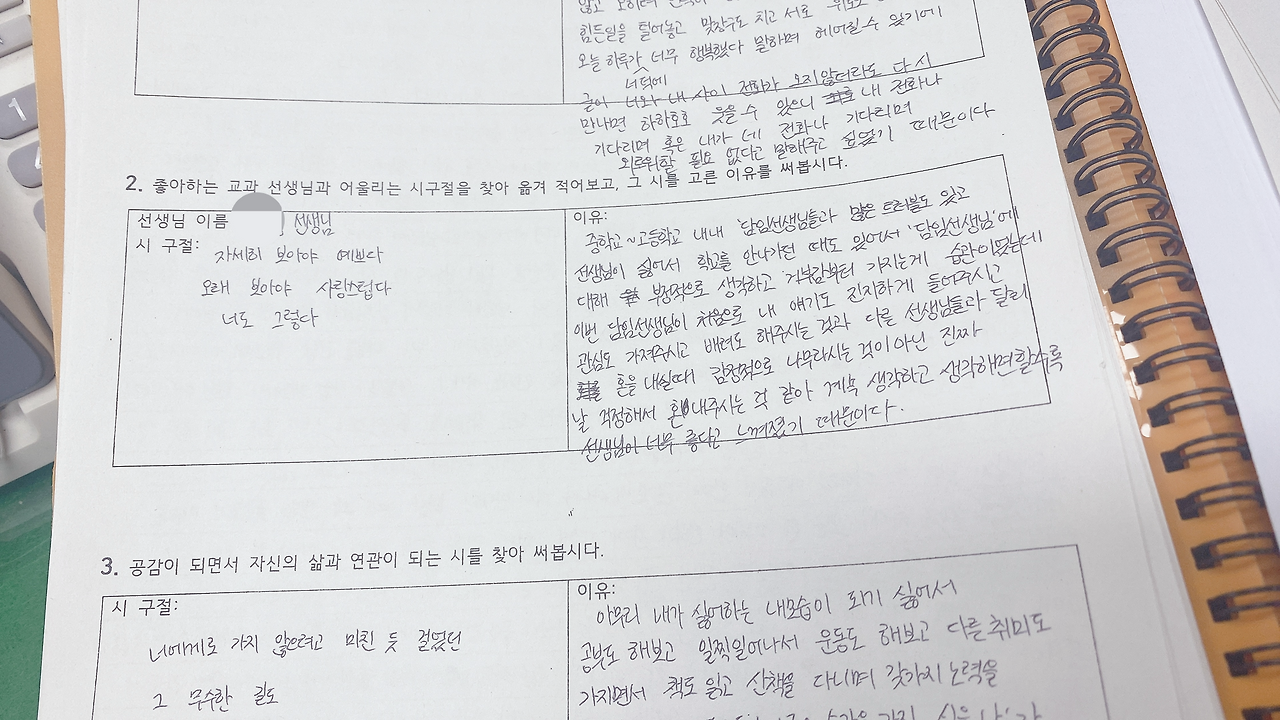 힘든일을 털어놓고 맞장구도 치고 서로
오늘 하루가 너무 행복했다 말하며 헤어질 수 있기에
너덕에
글이 너와 내 사이 전화가 오지 않더라도 다시
만나면 하하호호 웃을 수 있으니 내 전화나
기다리며 혹은 내가 네 전화나 기다리며
외로워할 필요 없다고 말해주고 싶었기 때문이다
2. 좋아하는 교과 선생님과 어울리는 시구절을 찾아 옮겨 적어보고, 그 시를 고른 이유를 써봅시다.
선생님 이름 선생님
시 구절:
자세히 보아야 예쁘다
오래 보아야 사랑스럽다
너도 그렇다
이유:
중학교~고등학교 내내 '담임선생님들과 많은 트러블도 있고
선생님이 싫어서 학교를 안나가던 때도 있어서 '담임선생님'에
대해 부정적으로 생각하고 거부감부터 가지는게 습관이었는데
이번 담임선생님이 처음으로 내 얘기도 진지하게 들어주시고
관심도 가져주시고 배려도 해주시는 것과 다른 선생님들과 달리
혼을 내실때 감정적으로 나무라시는 것이 아닌 진짜
날 걱정해서 혼내주시는 것 같아 계속 생각하고 생각해면할수록
선생님이 너무 좋다고 느껴졌기 때문이다.
3. 공감이 되면서 자신의 삶과 연관이 되는 시를 찾아 써봅시다.
시 구절:
너에게로 가지 않으려고 미친 듯 걸었던
그 무수한 길도
이유:
아무리 내가 싫어하는 내모습이 되기 싫어서
공부도 해보고 일찍일어나서 운동도 해보고 다른 취미도
가지면서 책도 읽고 산책을 다니며 갖가지 노력을
1